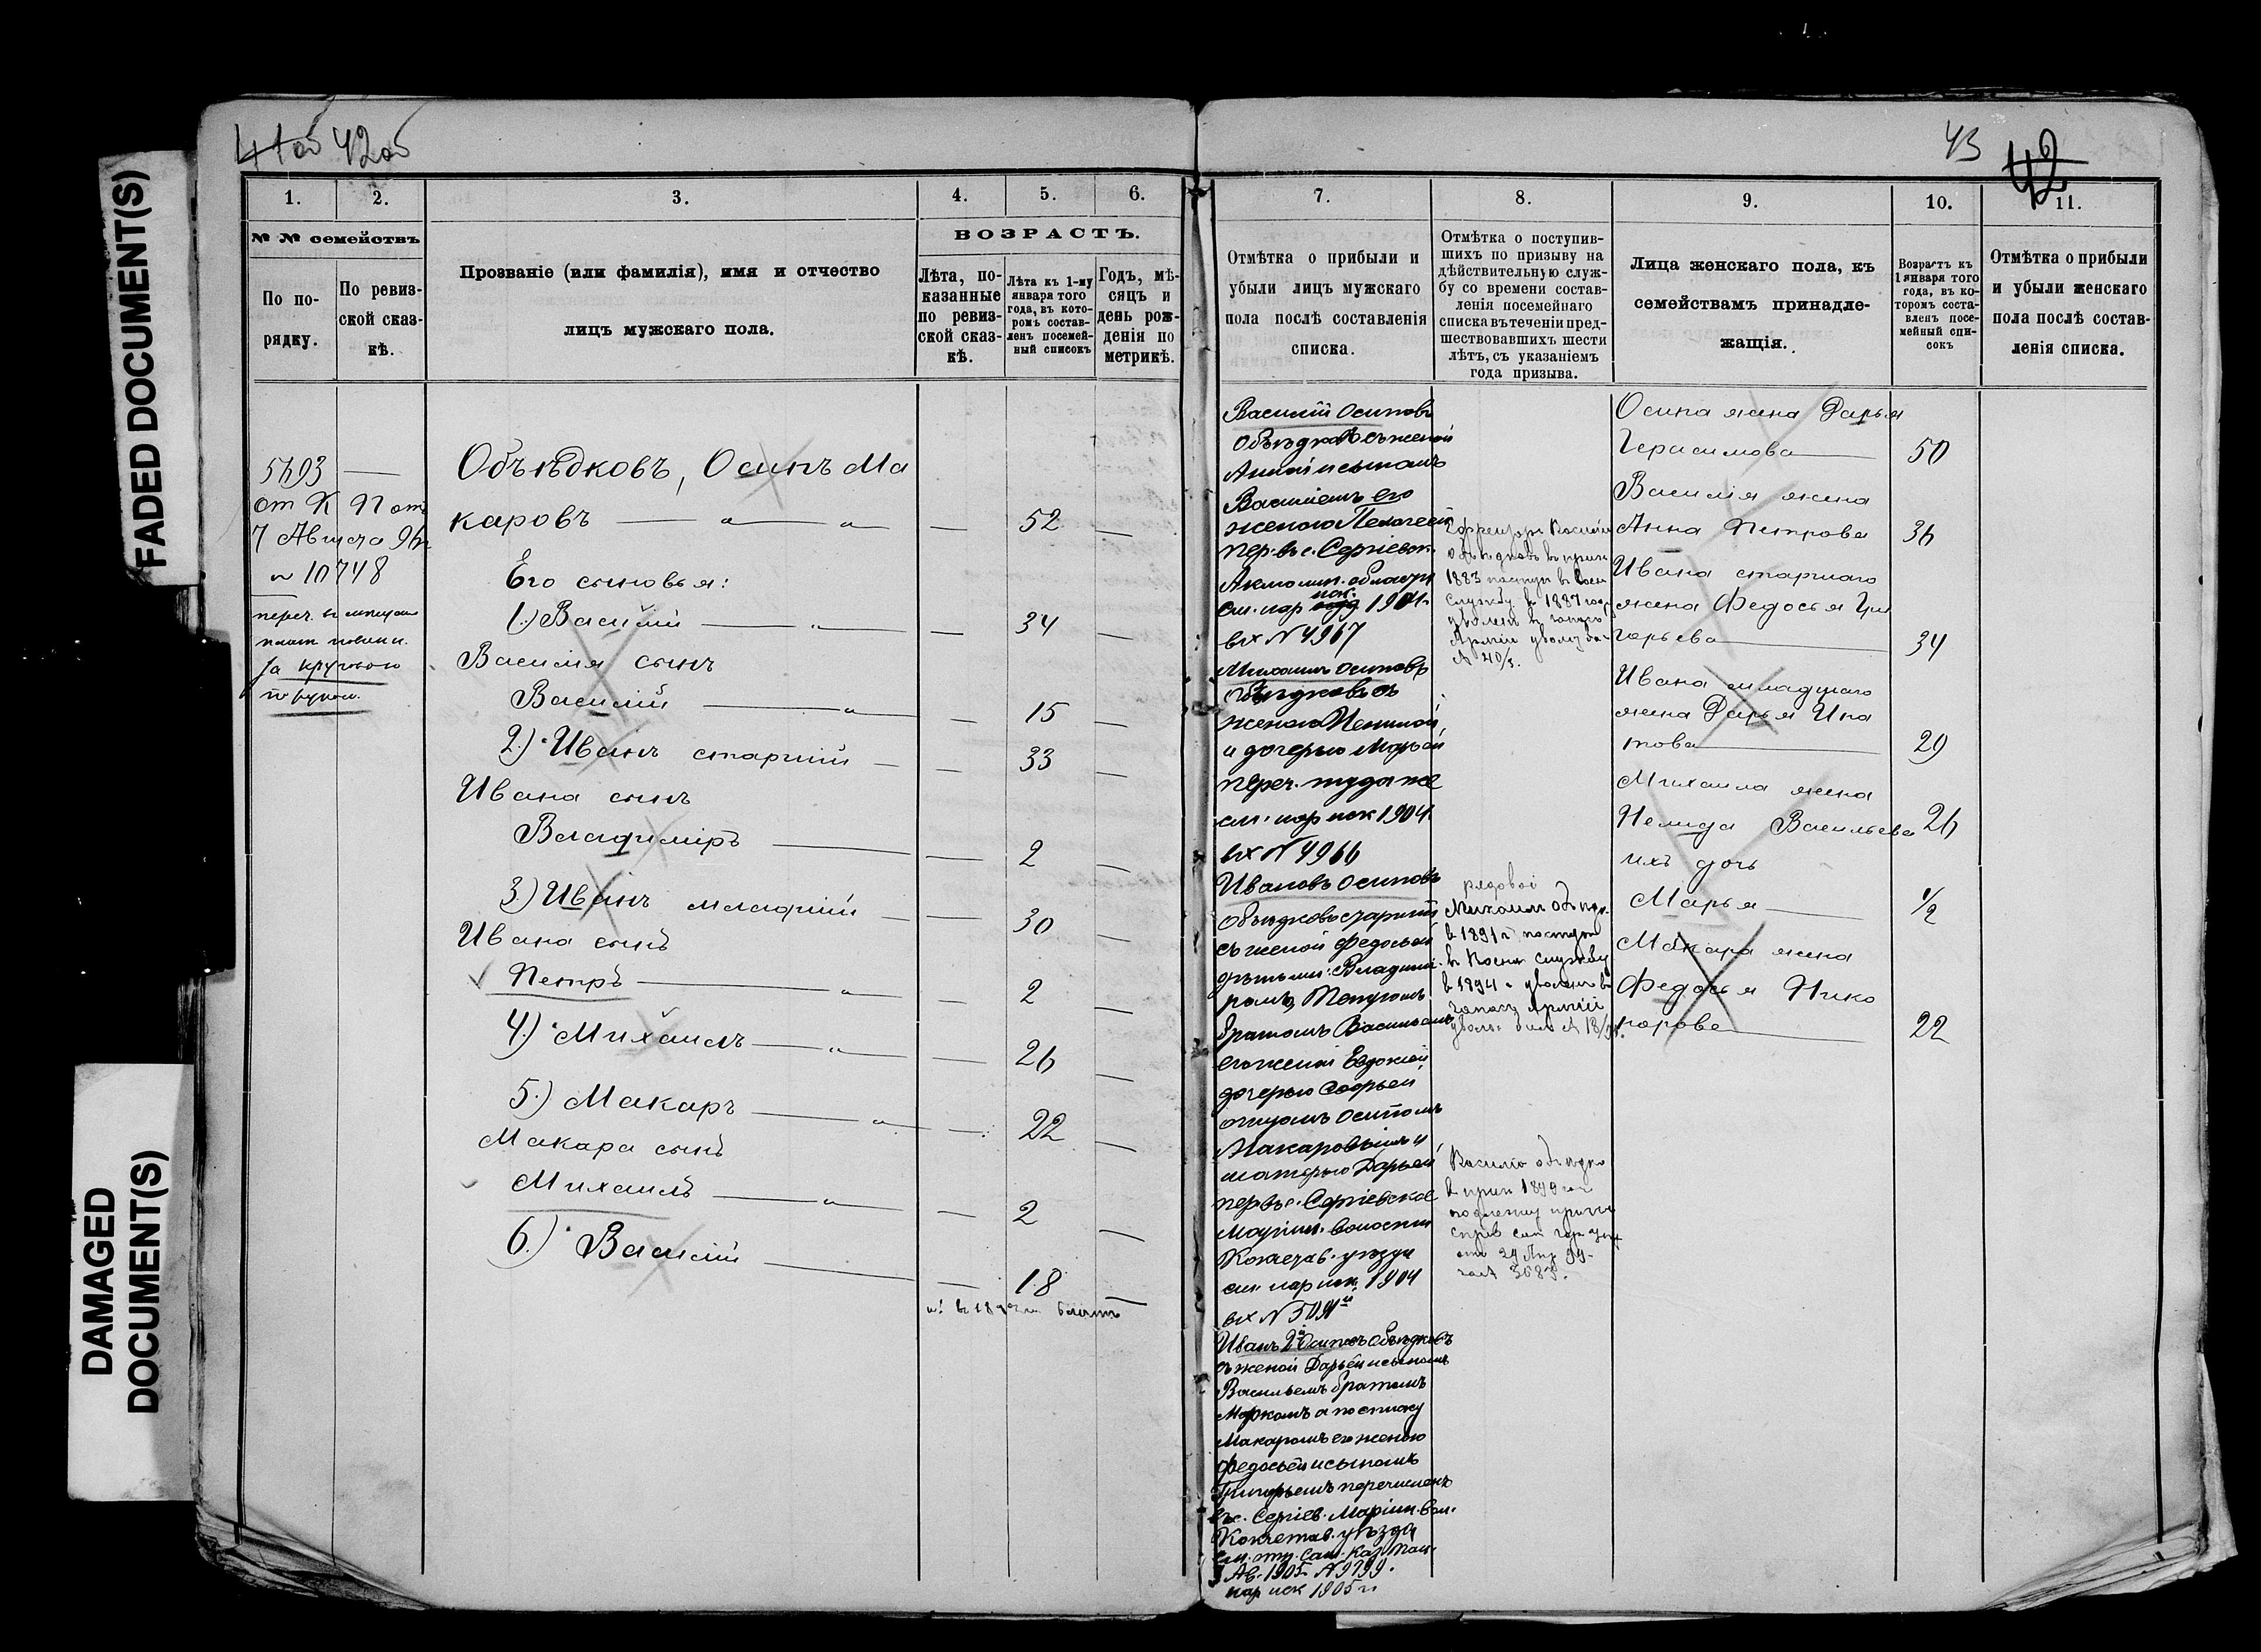 FADED DOCUMENT(S)
DAMAGED
DOCUMENT(S)
41об 42об
1.
2.
3.
4.
5.
6.
№ № семействъ
По по-
рядку.
По ревиз-
ской сказ-
кѣ.
Прозваніе (или фамилія), имя и отчество
лицъ мужскаго пола.
ВОЗРАСТЪ.
Лѣта, по-
казанные
по ревиз-
ской сказ-
кѣ.
Лѣта къ 1-му
января того
года, въ кото-
ромъ состав-
ленъ посемей-
ный списокъ
Годъ, мѣ-
сяцъ и
день рож-
денія по
метрикѣ.
от К П от
7 Августа
№ 10748
переч. въ
за круговою
порукою.
Объѣдковъ, Осипъ Ма
каровъ — „ — „ — 52 —
Его сыновья:
1.) Василій — „ — 34 —
Василія сынъ
Василій — „ — 15 —
2.) Иванъ старшій — — 33 —
Ивана сынъ
Владиміръ — — 2 —
3.) Иванъ младшій — — 30 —
Ивана сынъ
Петръ — „ — 2 —
4.) Михаилъ — „ — 26 —
5.) Макаръ — „ — 22 —
Макара сынъ
Михаилъ — „ — 2 —
6.) Василій — — 18 —
43
42
7.
8.
9.
10.
11.
Отмѣтка о прибыли и
убыли лицъ мужскаго
пола послѣ составленія
списка.
Отмѣтка о поступив-
шихъ по призыву на
дѣйствительную служ-
бу со времени состав-
ленія посемейнаго
списка въ теченіи пред-
шествовавшихъ шести
лѣтъ, съ указаніемъ
года призыва.
Лица женскаго пола, къ
семействамъ принадле-
жащія.
Возрастъ къ
1 января того
года, въ ко-
торомъ соста-
вленъ посе-
мейный спи-
сокъ
Отмѣтка о прибыли
и убыли женскаго
пола послѣ состав-
ленія списка.
Василій Осиповъ
Объѣдковъ съ женой
Анной и сыномъ
Василіемъ его
женою Пелагеей
пер. въ с. Сергіевск.
Акмолин. области
см. нар 1904 г.
вх № 4967
Михаилъ Осиповъ
Объѣдковъ съ
женою
и дочерью Марьей
переч. туда же
см. нар иск 1904
вх № 4966
Ивановъ Осиповъ
Объѣдковъ старшій
съ женой Федосьей
дѣтьми: Владими-
ромъ, Петромъ
братомъ Васильемъ
его женой Евдокией
дочерью Софьей
отцомъ Осипомъ
Макаровымъ и
матерью Дарьей
пер въ с. Сергіевское
Маріин. волости
Кокчетав. уѣзда
см. нар иск. 1904
вх № 5091
Иванъ 2й Осиповъ Объѣдковъ
съ женой Дарьей и сыномъ
Васильемъ братомъ
Маркомъ а по списку
Макаромъ его женою
Федосьей и сыномъ
Григорьемъ перечисленъ
въ с. Сергіев. Маріин. вол.
Кокчетав. уѣзда
см. отн. Сам. Каз. Пал.
3 Ав. 1905 № 9799.
нар иск 1905 г.
1883 поступ въ воен
службу въ 1887 году
уволенъ въ запасъ
Арміи
рядовой
Михаилъ Объѣдк.
в 1891 г поступ
в воен службу
в 1894 г уволенъ в
запасъ Арміи
Василій Объѣдко
в приз 1899 год
Осипа жена Дарья
Герасимова — 50
Василія жена
Анна Петрова 36
Ивана старшаго
жена Федосья Гри
горьева — 34
Ивана младшаго
жена Дарья Ипа
това — 29
Михаила жена
Васильева 26
ихъ дочь
Марья — 1/2
Макара жена
Федосья Нико
норова — 22